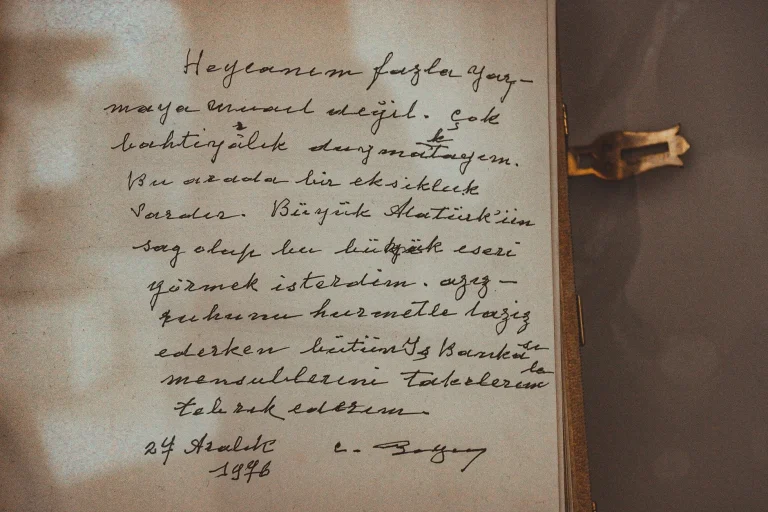 Heyecanım fazla yaz-
maya musait değil. Çok
bahtiyarlık duymaktayım.
Bu arada bir eksiklik
vardır. Büyük Atatürk'ün
sag olup bu büyük eseri
görmek isterdim. aziz-
ruhunu hurmetle taziz
ederken bütün İş Bankası
mensublarını takdirle
tebrik ederim.
27 Aralık c. Bayar
1976